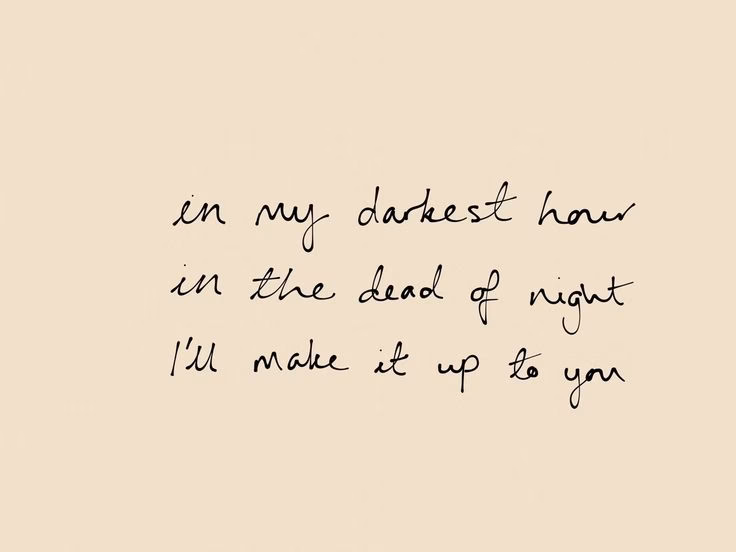 in my darkest hour
in the dead of night
I'll make it up to you